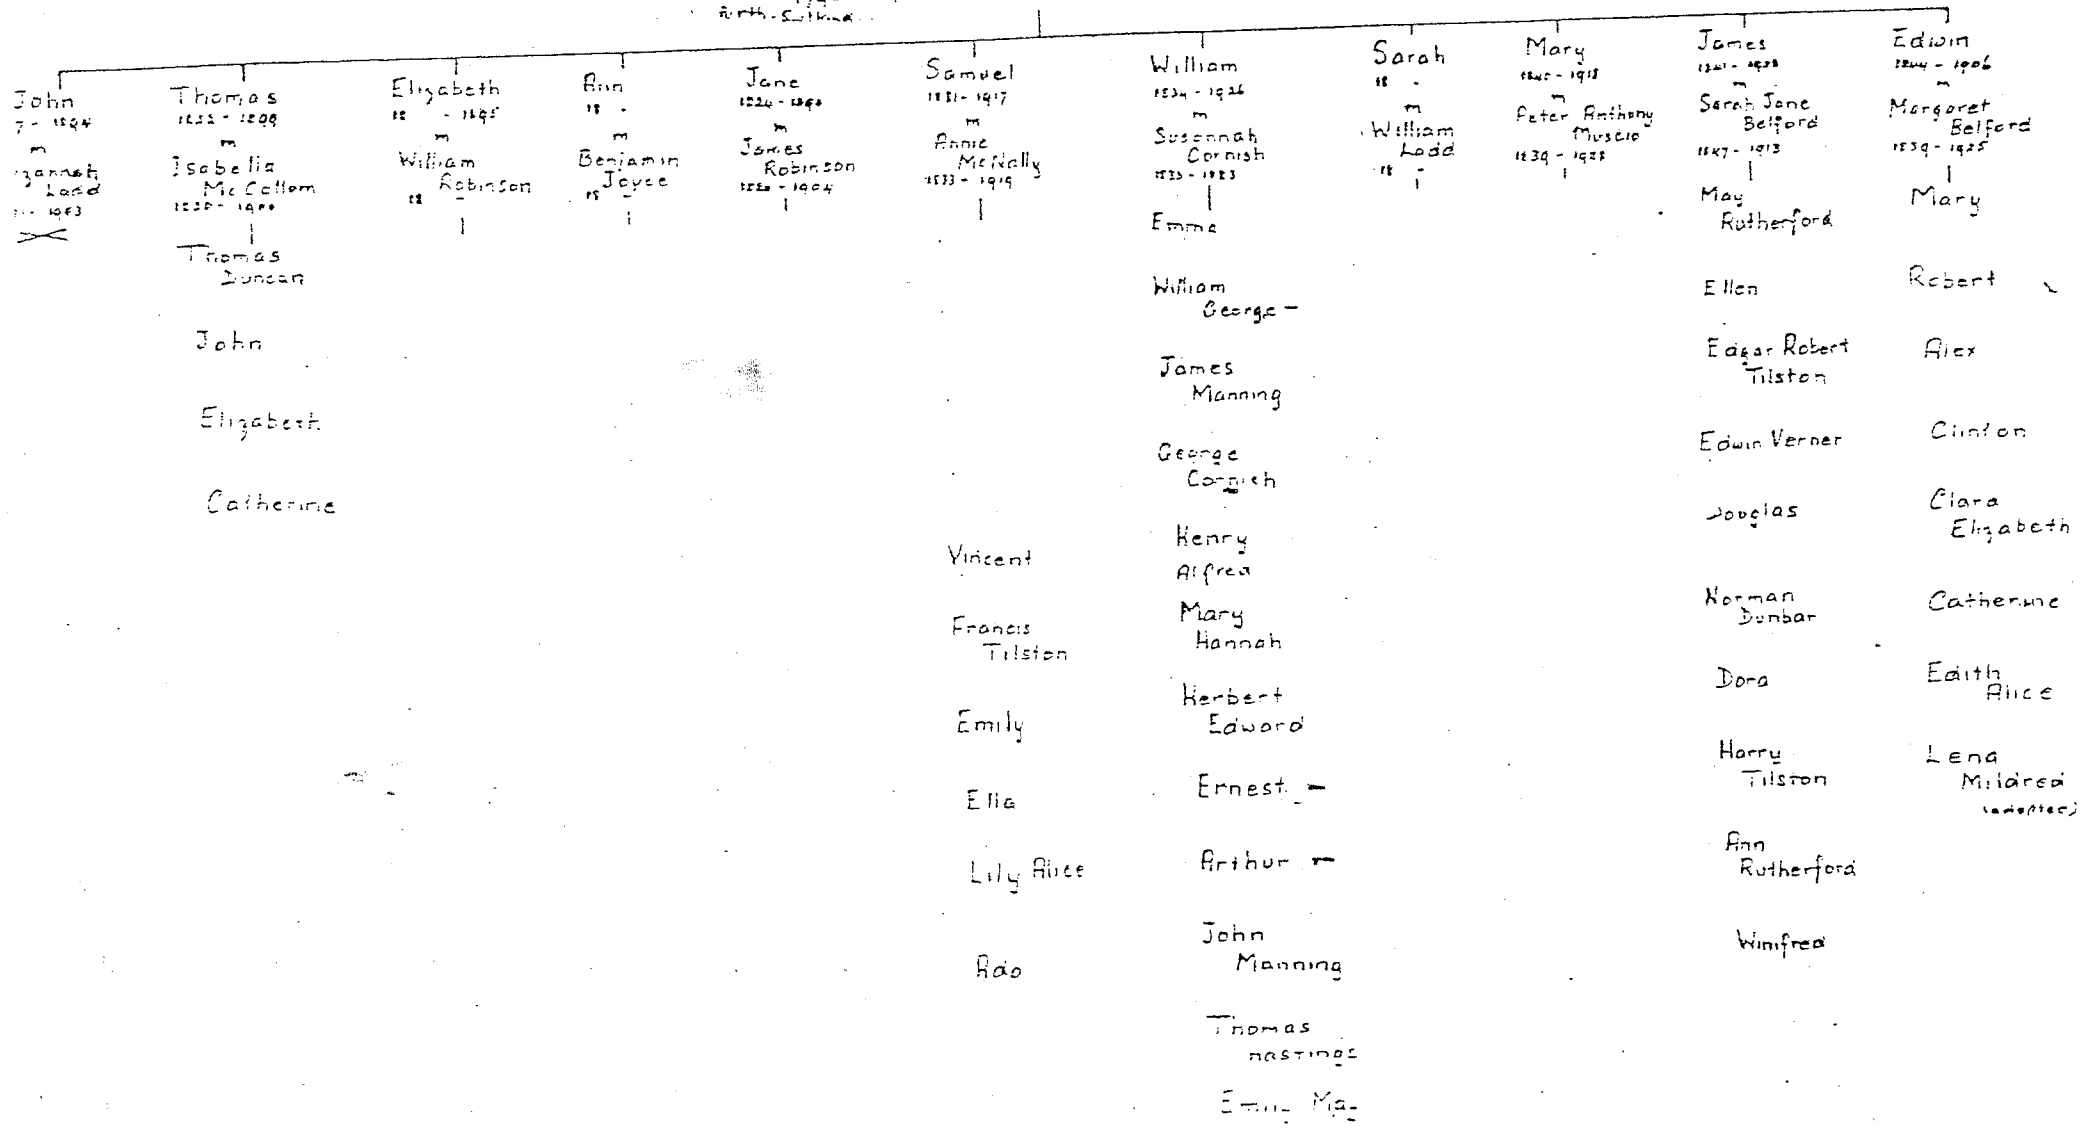 John
m
Ladd
Thomas
m
Isabella
McCollom
Thomas
Duncan
John
Elizabeth
Catherine
Elizabeth
18 - 1895
m
William
Robinson
18 -
Ann
18 -
m
Benjamin
Joyce
18 -
Jane
m
James
Robinson
Samuel
1831 - 1917
m
Annie
McNally
1833 - 1919
Vincent
Francis
Tilston
Emily
Ella
Lily Alice
Ada
William
1834 - 1926
m
Susannah
Cornish
Emma
William
George -
James
Manning
George
Cornish
Henry
Alfred
Mary
Hannah
Herbert
Edward
Ernest -
Arthur -
John
Manning
Thomas
Hastings
Sarah
18 -
m
William
Ladd
18 -
Mary
m
Peter Anthony
Muscio
1839 - 1928
James
m
Sarah Jane
Belford
1847 - 1913
May
Rutherford
Ellen
Edgar Robert
Tilston
Edwin Verner
Douglas
Norman
Dunbar
Dora
Harry
Tilston
Ann
Rutherford
Winifred
Edwin
1844 - 1906
m
Margaret
Belford
1859 - 1925
Mary
Robert
Alex
Clinton
Clara
Elizabeth
Catherine
Edith
Alice
Lena
Mildred
(adopted)